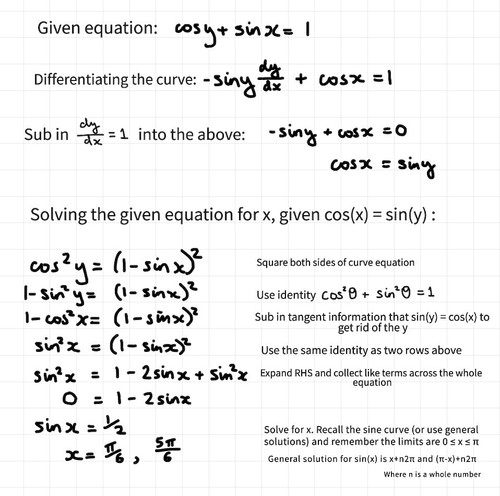 Given equation: cosy + sinx = 1
Differentiating the curve: -siny dy/dx + cosx = 1
Sub in dy/dx = 1 into the above: -siny + cosx = 0
cosx = siny
Solving the given equation for x, given cos(x) = sin(y) :
cos²y = (1-sinx)² Square both sides of curve equation
1-sin²y = (1-sinx)² Use identity cos²θ + sin²θ = 1
1-cos²x = (1-sinx)² Sub in tangent information that sin(y) = cos(x) to
get rid of the y
sin²x = (1-sinx)² Use the same identity as two rows above
sin²x = 1 - 2sinx + sin²x Expand RHS and collect like terms across the whole
equation
0 = 1 - 2sinx
sinx = 1/2 Solve for x. Recall the sine curve (or use general
solutions) and remember the limits are 0 ≤ x ≤ π
x = π/6 , 5π/6 General solution for sin(x) is x+n2π and (π-x)+n2π
Where n is a whole number